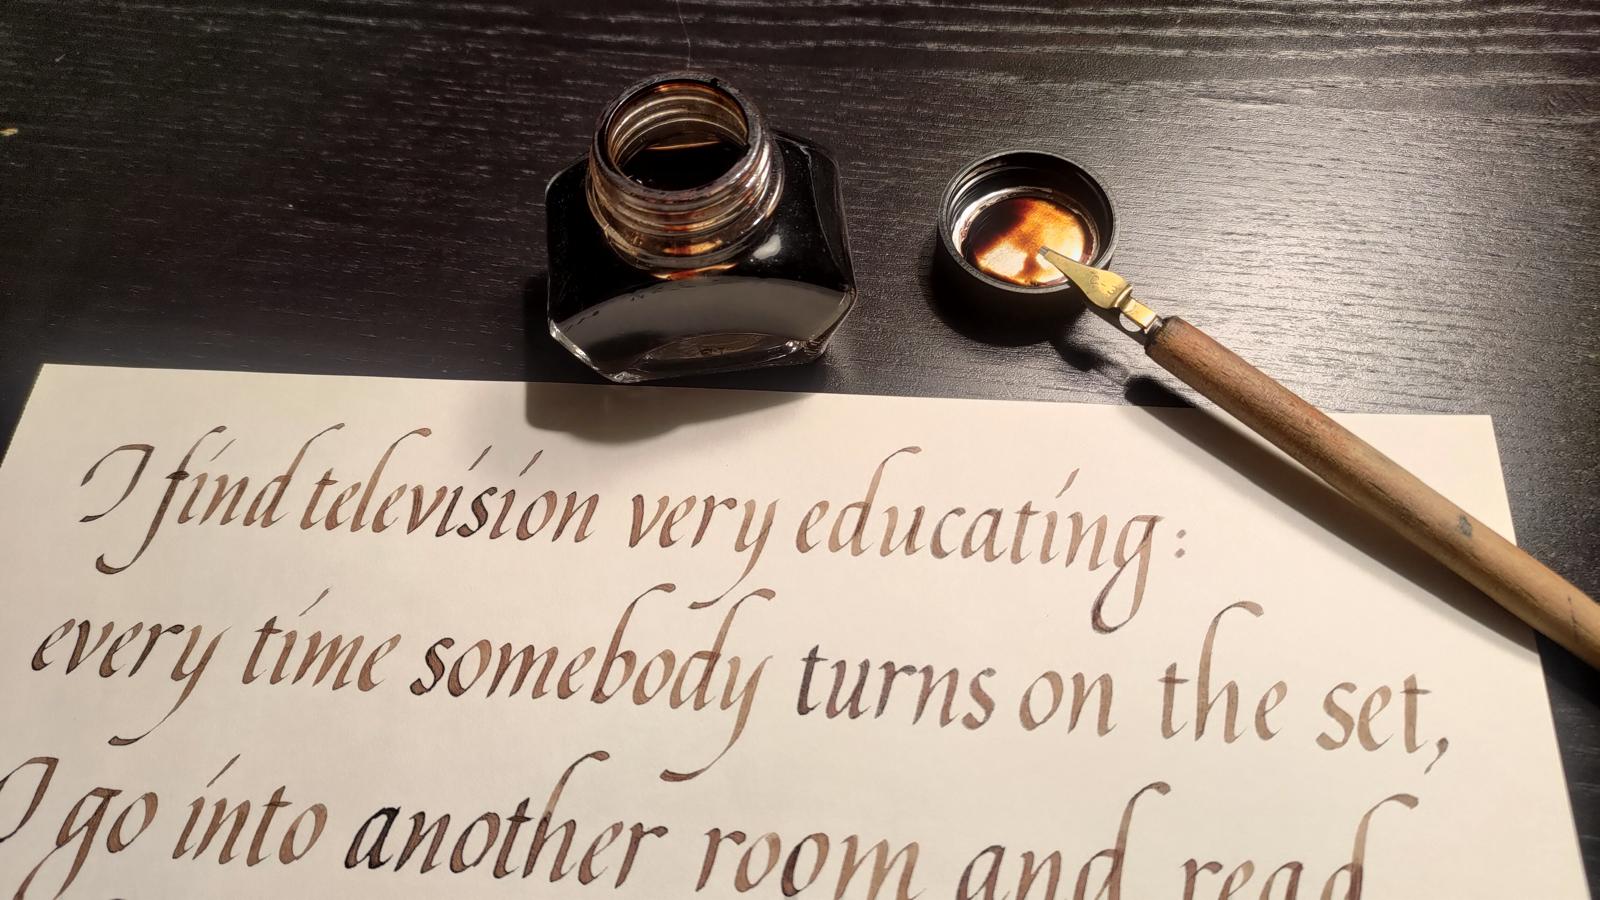 I find television very educating:
every time somebody turns on the set,
I go into another room and read